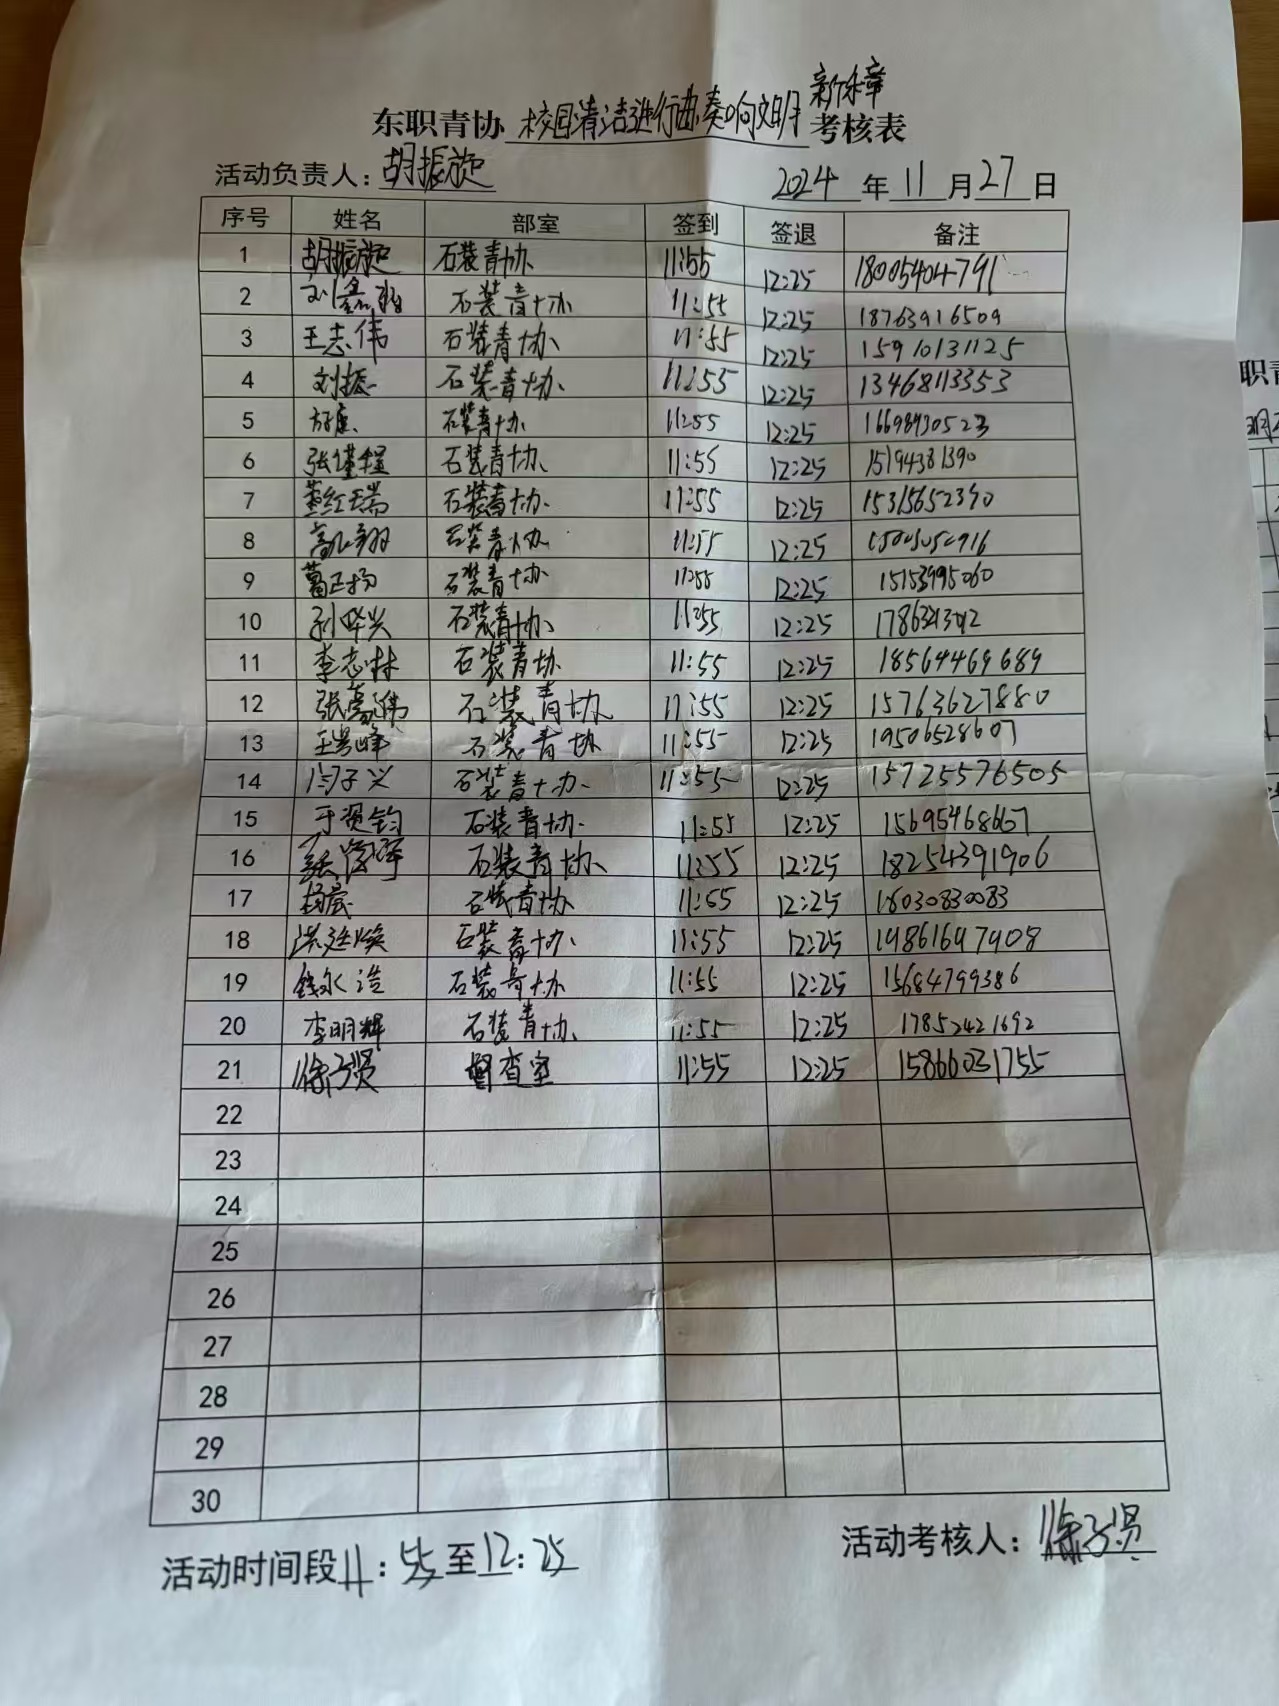 新乐章
东职青协 校园清洁进行曲,奏响文明 考核表
活动负责人: 胡振超
2024 年 11 月 27 日
序号 姓名 部室 签到 签退 备注
1 胡振超 石装青协 11:55 12:25 18005404791
2 石装青协 11:55 12:25 18763916509
3 王志伟 石装青协 11:55 12:25 15910131125
4 刘振 石装青协 11:55 12:25 13468113353
5 石装青协 11:55 12:25 16698430523
6 石装青协 11:55 12:25 15194381390
7 董红瑞 石装青协 11:55 12:25 15315652390
8 石装青协 11:55 12:25
9 葛正扬 石装青协 11:55 12:25 15153995060
10 石装青协 11:55 12:25
11 李志林 石装青协 11:55 12:25 18564469689
12 张豪伟 石装青协 11:55 12:25 15763627880
13 石装青协 11:55 12:25 19506528607
14 闫子义 石装青协 11:55 12:25 15725576505
15 于贤钧 石装青协 11:55 12:25 15695468657
16 石装青协 11:55 12:25 18254391906
17 石装青协 11:55 12:25 18030830083
18 石装青协 11:55 12:25 19861647908
19 钱永浩 石装青协 11:55 12:25 15684799386
20 李明辉 石装青协 11:55 12:25 17852421692
21 徐子贤 督查室 11:55 12:25 15866031755
22
23
24
25
26
27
28
29
30
活动时间段 11:55 至 12:25
活动考核人: 徐子贤
职青